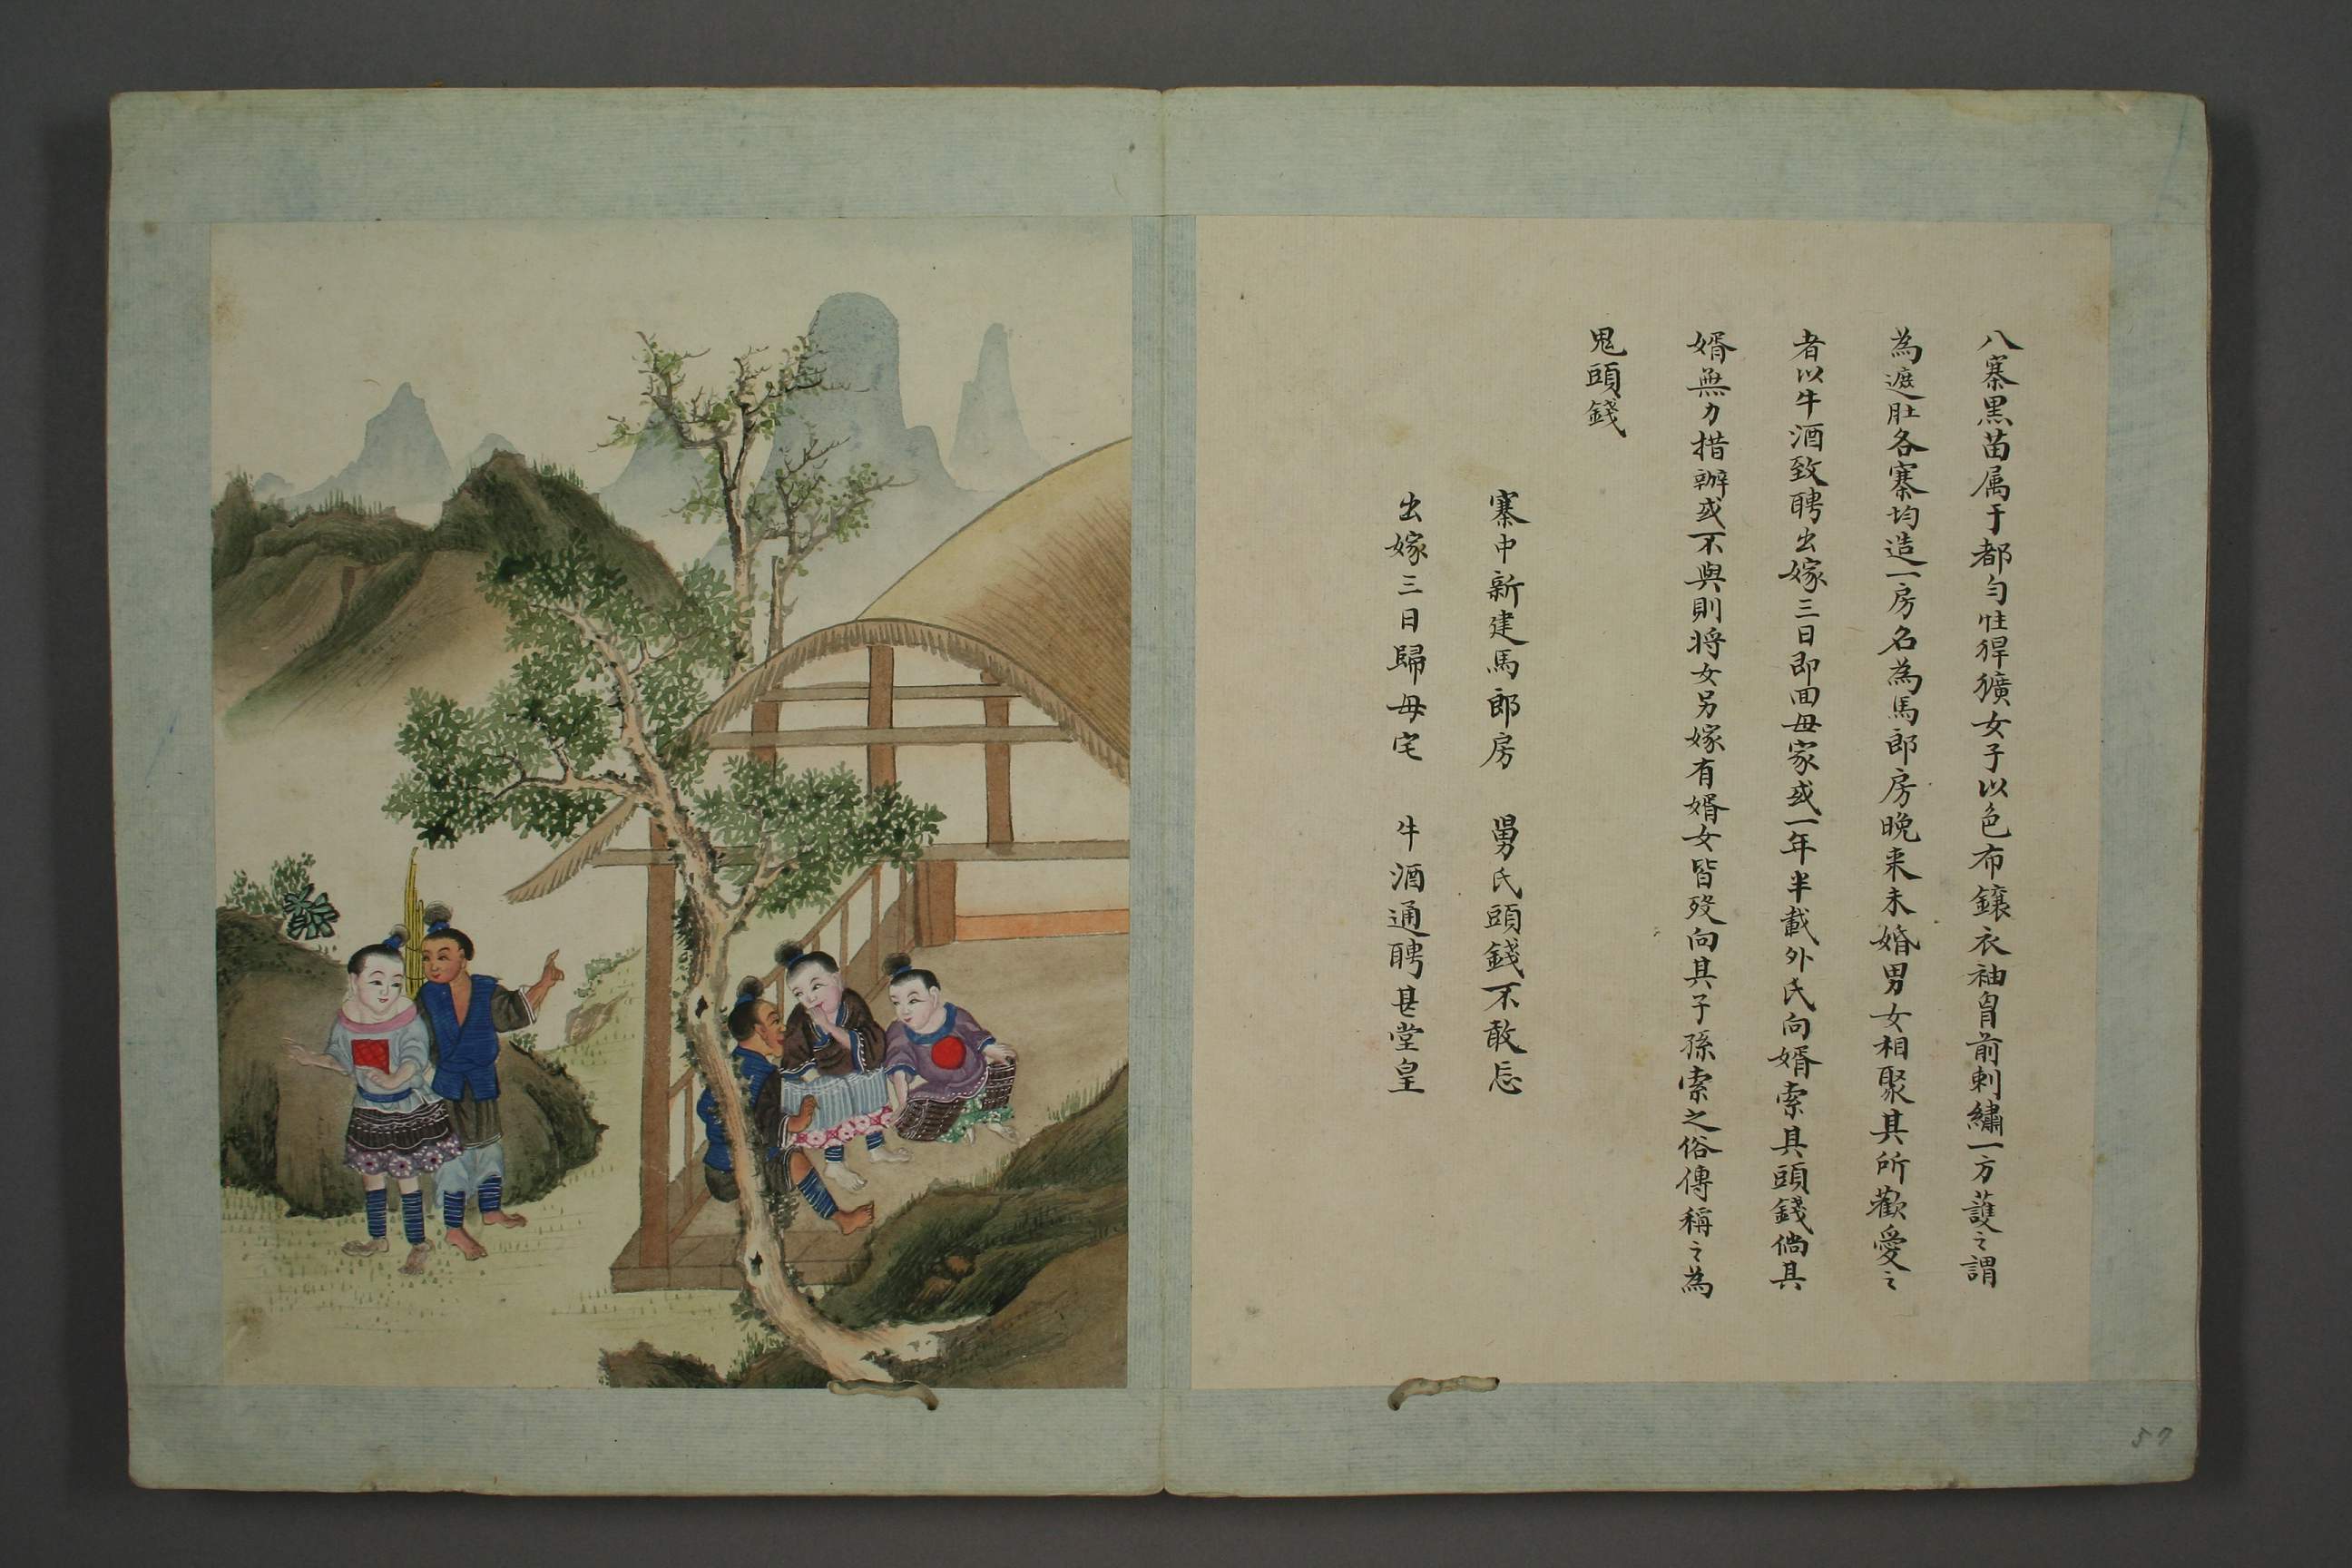 八寨黑苗属于都匀性獷悍女子以色布鑲衣袖胷前刺繡一方護之謂
為遮肚各寨均造一房名為馬郎房晚来未婚男女相聚其所歡愛之
者以牛酒致聘出嫁三日即回母家或一年半載外氏向婿索其頭錢倘其
婿無力措辦或不與則将女另嫁有婿女皆歿向其子孫索之俗傳稱之為
鬼頭錢
寨中新建馬郎房 舅氏頭錢不敢忘
出嫁三日歸母宅 牛酒通聘甚堂皇
57